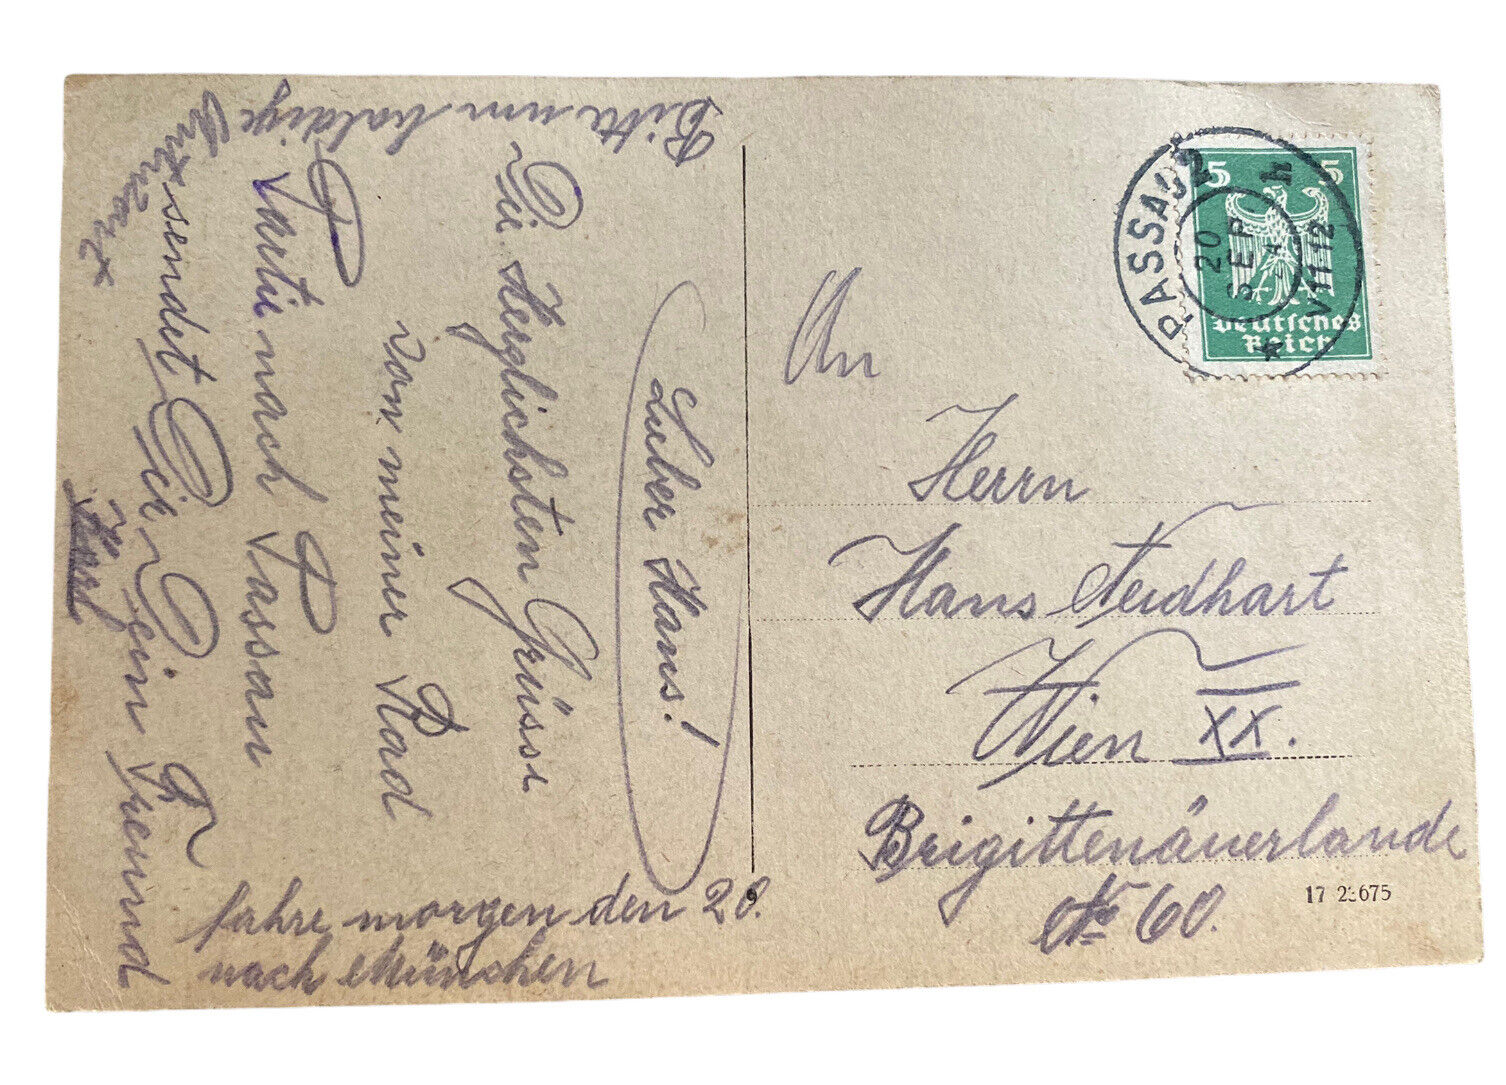 Lieber Hans!
Die Herzlichsten Grüsse
von meiner Rad
Partie nach Passau
sendet Dir Dein Freund
Karl
Bitte um baldige
Antwort
fahre morgen den 20.
nach München
An
Herrn
Hans Neidhart
Wien XX.
Brigittenäuerlände
No 60.
17 23675
PASSAU 2
20
SEP
V 11-12
h
5 5
Deutsches
Reich